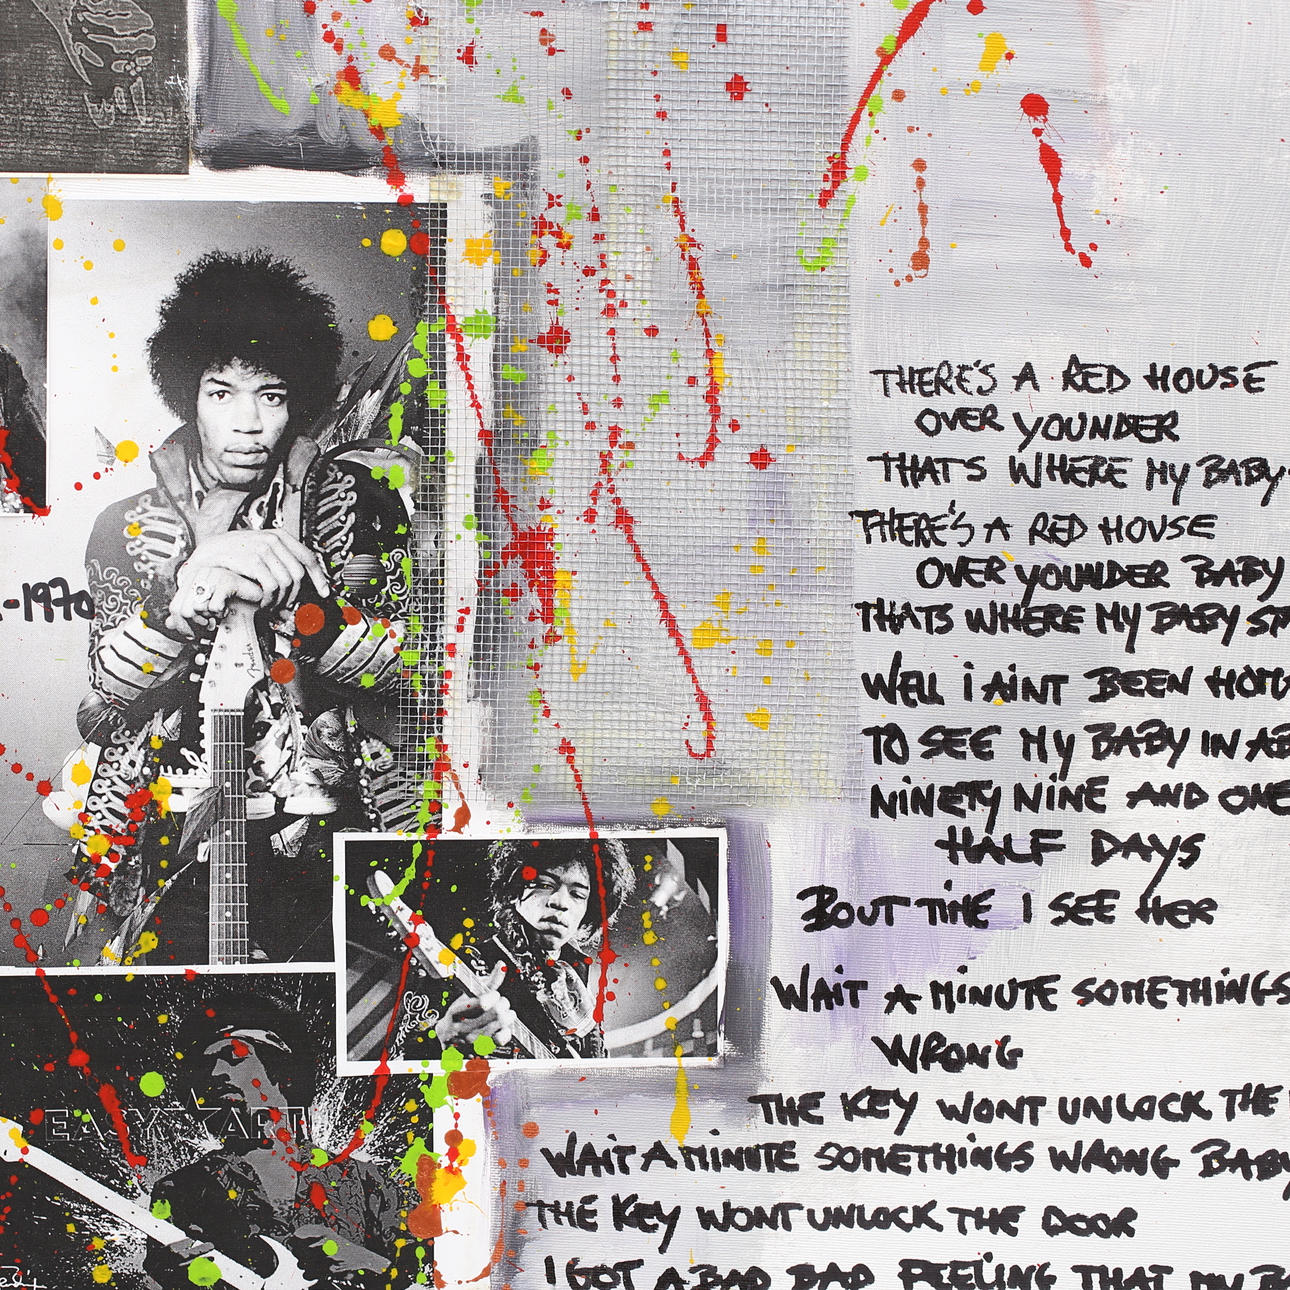 -1970
Fender
THERE'S A RED HOUSE
OVER YOUNDER
THATS WHERE MY BABY
THERE'S A RED HOUSE
OVER YOUNDER BABY
THATS WHERE MY BABY
WELL I AINT BEEN
TO SEE MY BABY IN
NINETY NINE AND ONE
HALF DAYS
BOUT TIME I SEE HER
WAIT A MINUTE SOMETHINGS
WRONG
THE KEY WONT UNLOCK THE
WAIT A MINUTE SOMETHINGS WRONG BABY
THE KEY WONT UNLOCK THE DOOR
I GOT A BAD BAD FEELING THAT MY
EASY ART